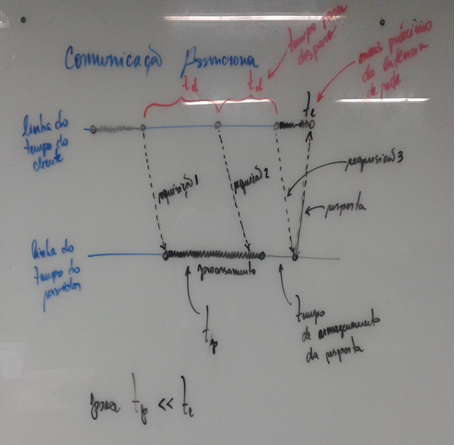 Comunicação Assíncrona
tempo para
disparo
mais próximo
da latência
de rede
td td
te
linha do
tempo do
cliente
requisição 1
requisição 2
requisição 3
resposta
linha do
tempo do
servidor
processamento
tp
tempo
de armazenamento
da resposta
para tp << te